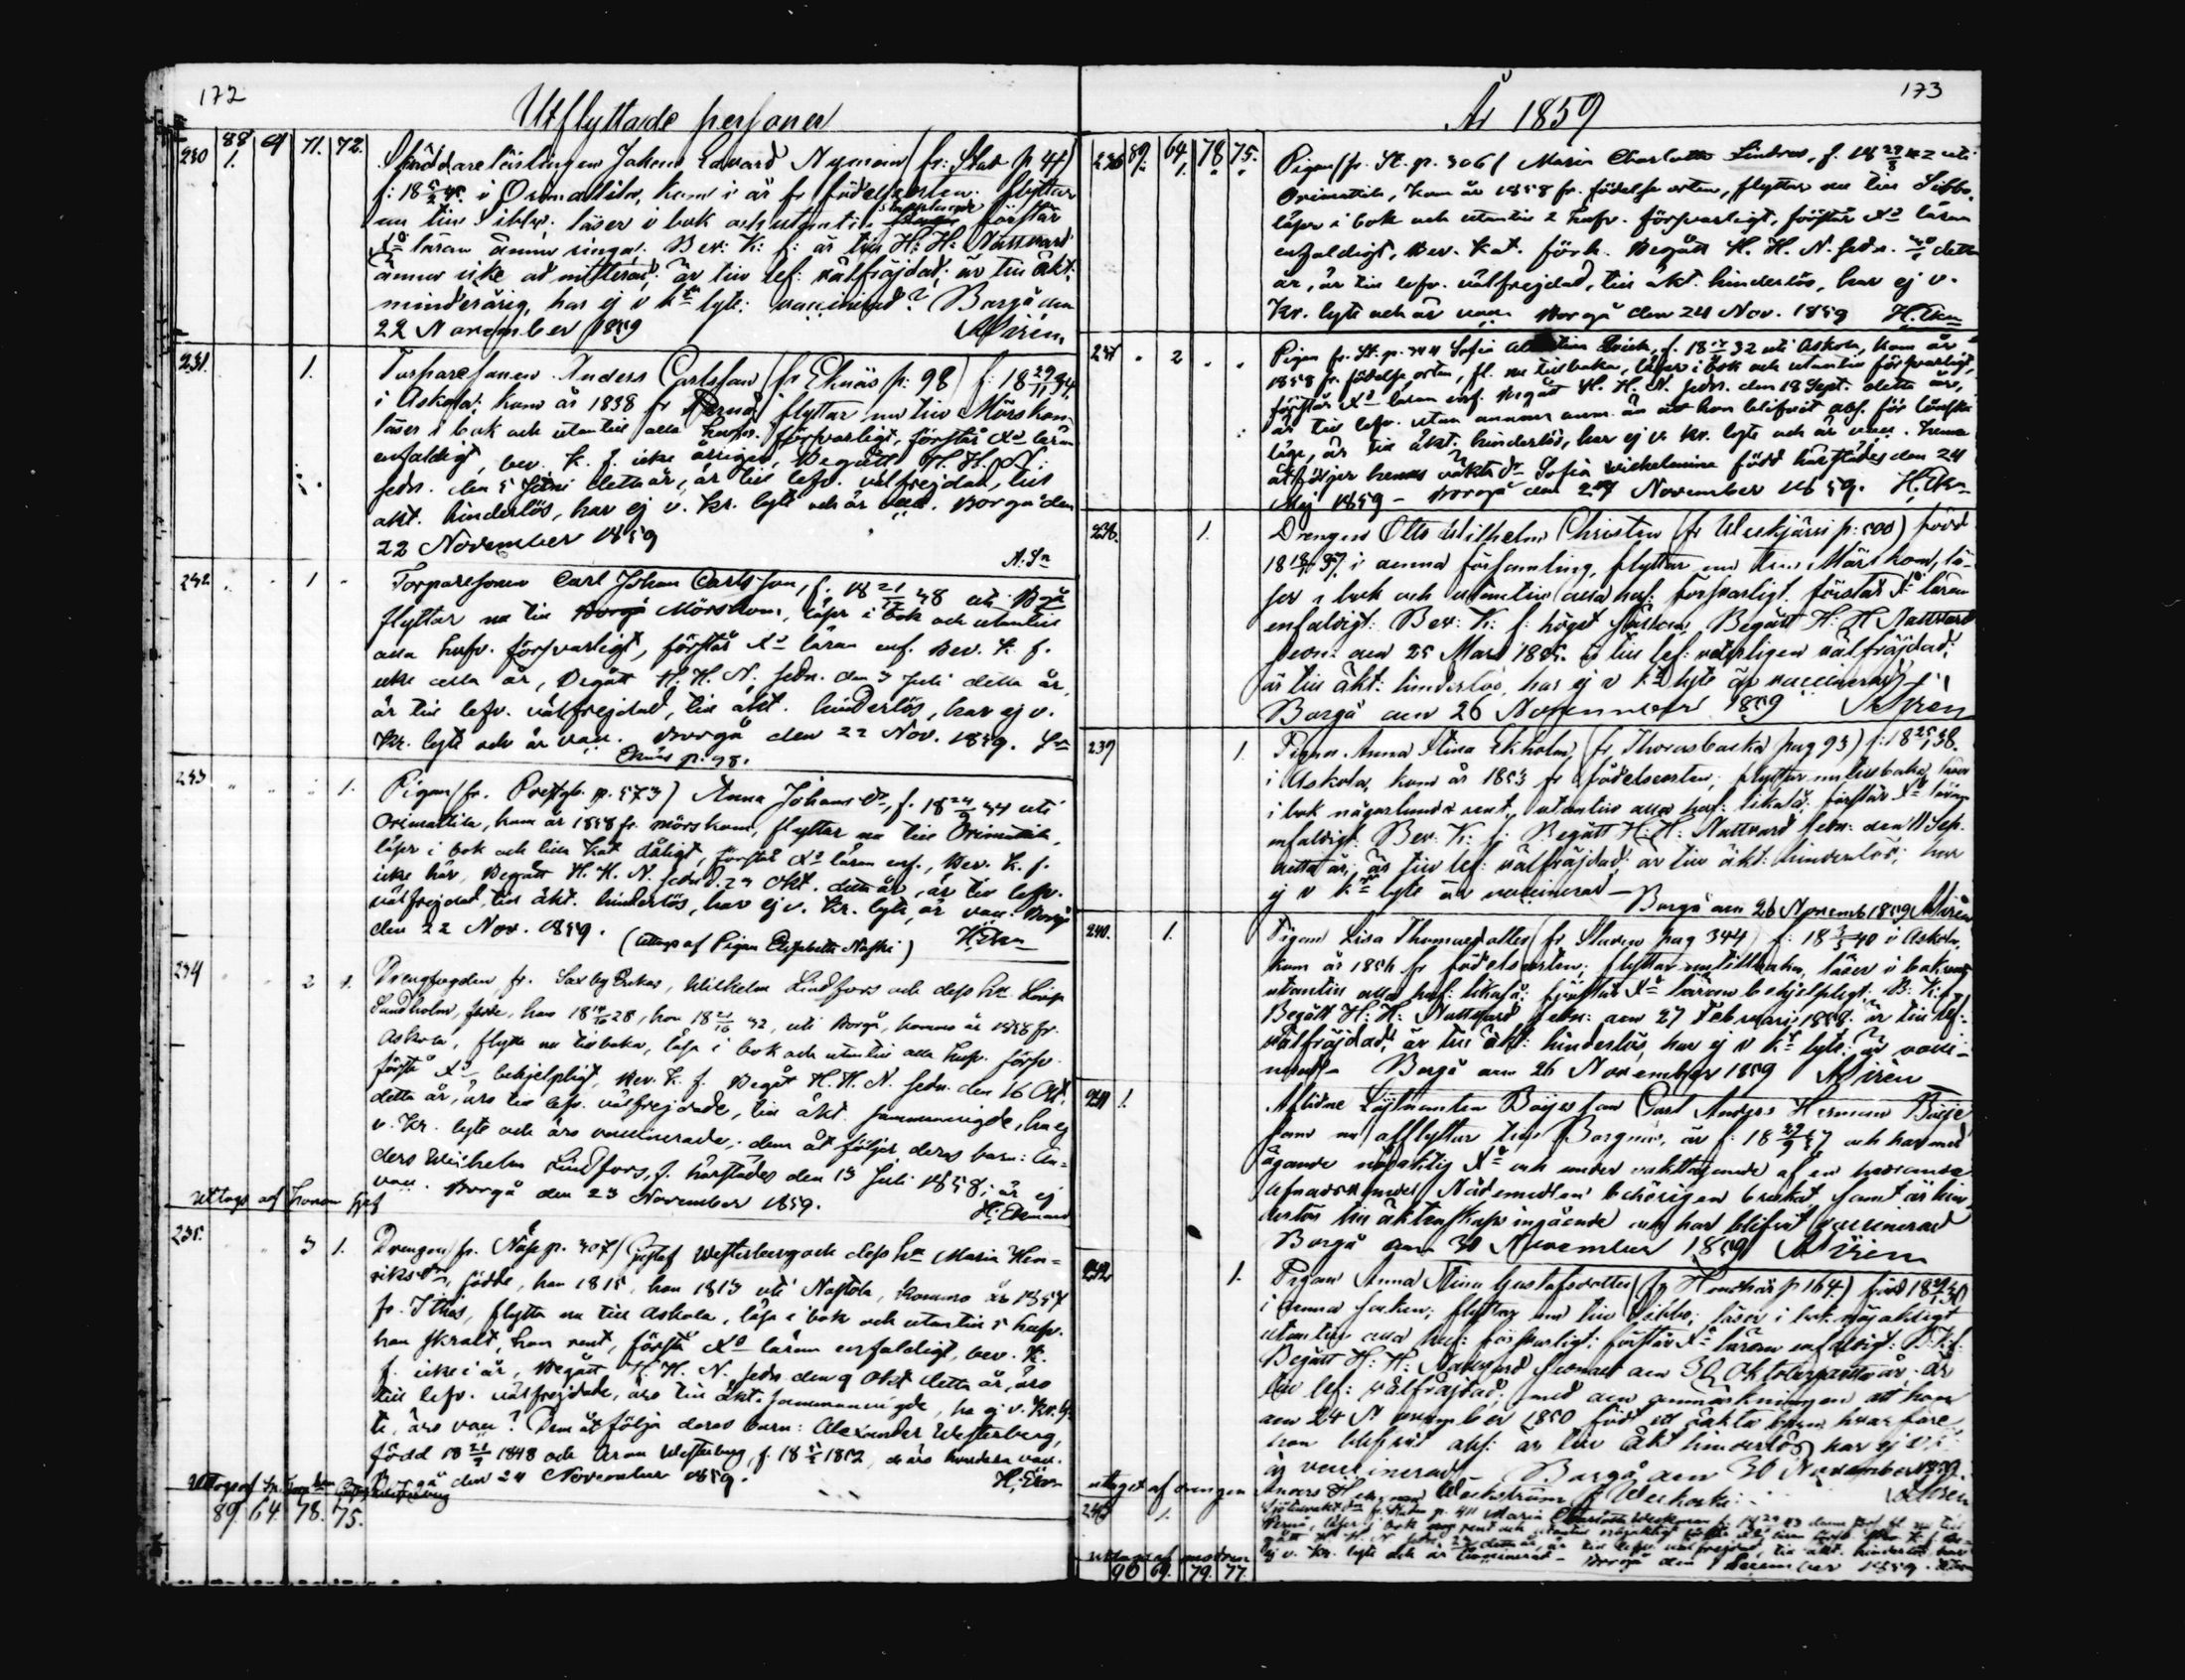 172
Utflyttade personer
230 88 69 71. 72. Skräddarelärlingen Jakob Edvard Nyman (fr: Stad p 44)
f: 18 45 i Orimattila, kom i år fr födelseorten. flyttar
nu till Sibbo; läser i bok och utantill förstår
Xd läran ännu ringa; Bev: K: f: är till H: H: Nattvard
ännu icke admitterad; är till lef: välfräjdad; är till äkt:
minderårig, har ej v k lyte: vaccinerad? Borgå den
22 November 1859 Sirén
231. 1. Torparesonen Anders Carlsson (fr Eknäs p: 98) f: 18 34
i Askola; kom år 1838 fr Pernå flyttar nu till Mörskom
läser i bok och utantill alla hufv. försvarligt, förstår Xd läran
enfaldigt, bev. K. f. icke Begått H. H. N.
sedn. den 5 Juni detta år, är till lefv. välfrejdad, till
äkt. hinderlös, har ej v. kr. lyte och är vacc. Borgå den
22 November 1859
232. 1 Torparesonen Carl Johan Carlsson, f. 18 38 uti Bgå
flyttar nu till Mörskom, läser i bok och utantill
alla hufv. försvarligt, förstår Xd läran enf. Bev. K. f.
icke detta år, Begått H. H. N. sedn. den 3 Juli detta år,
är till lefv. välfrejdad, till äkt. hinderlös, har ej v.
kr. lyte och är vacc. Borgå den 22 Nov. 1859.
Eknäs p. 98.
233 1. Pigan (fr. Prestgb. p. 573) Anna Johansdr, f. 18 34 uti
Orimattila, kom år 1858 fr. Mörskom, flyttar nu till Orimattila,
läser i bok och lilla Kat dåligt, förstår Xd läran enf., Bev. K. f.
icke här, Begått H. H. N. sedn d. 23 Okt. detta år, är till lefv.
välfrejdad, till äkt. hinderlös, har ej v. kr. lyte, är vacc. Borgå
den 22 Nov. 1859. (uttags af Pigan Elisabetha )
234 2 1. Drengfogden fr. Saxby Erikas, Wilhelm Lindfors och dess hu Lovisa
Sundholm, födde, han 18 28, hon 18 32, uti Borgå, komna år 1858 fr.
Askola, flytta nu tillbaka, läsa i bok och utantill alla hufv. försv.
förstå Xd behjelpligt, Bev. K. f. Begått H. H. N. sedn. den 16 Okt.
detta år, äro till lefv. välfrejdade, till äkt. sammanvigde, ha ej
v. kr. lyte och äro vaccinerade, dem åt följer deras barn: An-
ders Wilhelm Lindfors, f. härstädes den 13 Juli 1858; är ej
vacc. Borgå den 23 November 1859. H. Ekman
uttags af honom sjelf
235. 3 1. Drengen (fr. Näse p. 307) Gustaf Westerberg och dess hu Maria Hen-
riksdr, födde, han 1815, hon 1813 uti Nastola, komna år 1857
fr. Ithis, flytta nu till Askola, läsa i bok och utantill 5 hufv.
han skralt, hon rent, förstå Xd läran enfaldigt, bev. K.
f. icke i år, Begått H. H. N. sedn. den 9 Okt detta år, äro
till lefv. välfrejdade, äro till äkt. sammanvigde, ha ej v. kr. ly-
te, äro vacc? Dem åt följa deras barn: Alexander Westerberg,
född 18 1848 och Aron Westerberg, f. 18 1852, vacc.
Borgå den 24 November 1859.
89. 64. 78. 75.
173
År 1859
236 89. 64. 78 75. Pigan (fr. St. p. 306) Maria Charlotta Lindros, f. 18 42 uti
Orimattila, kom år 1858 fr. födelse orten, flyttar nu till Sibbo,
läser i bok och utantill 2 hufv. försvarligt, förstår Xd läran
enfaldigt, Bev. Kat. förh. Begått H. H. N. sedn. detta
år, är till lefv. välfrejdad, till äkt. hinderlös, har ej v.
kr. lyte och är vacc. Borgå den 24 Nov. 1859
237 2 Pigan fr. St. p. 344 Sofia f. 18 32 uti Askola, kom år
1858 fr. födelse orten, fl. nu tillbaka, läser i bok och utantill försvarligt,
förstår Xd läran enf. Begått H. H. N. sedn. den 18 Sept. detta år,
är till lefv. utan annan anm. än att hon blifvit abs. för lönska
läge, är till äkt. hinderlös, har ej v. kr. lyte och är vacc. henne
åtföljer hennes oäkta dr Sofia Wilhelmina född härstädes den 24
Maj 1859 - Borgå den 24 November 1859.
238. 1. Drengen Otto Wilhelm Christer (fr Weckjärvi p: 500) född
18 37 i denna församling, flyttar nu till Mörskom, lä-
ser i bok och utantill alla huf: försvarligt. förstår Xd läran
enfaldigt: Bev: K: f: högst sällan, Begått H: H Nattvard
sedn: den 25 Mars 1855. är till lef: välfräjdad;
är till äkt: hinderlös, har ej v k lyte är vaccinerad
Borgå den 26 November 1859 Sirén
239 1. Pigan Anna Stina Ekholm (fr Thorasbacka pag 93) f: 18 38.
i Askola, kom år 1853 fr födelseorten; flyttar nu tillbaka, läser
i bok någorlunda rent, utantill alla huf: likaså; förstår Xd läran
enfaldigt. Bev: K: f: Begått H: H: Nattvard sedn: den 11 Sep.
detta år, är till lef: välfräjdad; är till äkt: hinderlös; har
ej v k lyte är vaccinerad — Borgå den 26 Novemb 1859 Sirén
240. 1. Pigan Lisa Thomasdotter (fr Staden pag 344) f: 18 40 i Askola,
kom år 1856 fr födelseorten; flyttar nu tillbaka, läser i bok
utantill alla huf: likaså; förstår Xd läran behjelpligt. B: K: f:
Begått H: H: Nattvard sedn: den 27 Februari 1859. är till lef:
välfräjdad; är till äkt: hinderlös, har ej v k lyte: är vacci-
nerad - Borgå den 26 November 1859 Sirén
241 1. Aflidne Löjtnanten Böijes son Carl Anders Herman Böije
som nu afflyttar till Borgnäs, är f: 18 37 och har med
ägande nödaktig Xd och under vakttagande af en
Nådemedlen behörigen brukat samt är hin-
derlös till äktenskaps ingående och har blifvit vaccinerad
Borgå den 30 November 1859 Sirén
242. 1. Pigan Anna Stina Gustafsdotter (fr p 164) född 18 30
i denna socken; flyttar nu till Sibbo; läser i bok nöjaktigt
utantill alla huf: försvarligt: förstår Xd läran enfaldigt: B: K: f:
Begått H: H: Nattvard sednast den 30 Oktober detta år. är
till lef: välfräjdad; med den anmärkningen att hon
den 24 November 1850 födt ett oäkta barn hvarföre
hon blifvit abs: är till äkt hinderlös, har ej v k
är vaccinerad Borgå den 30 November 1859.
uttaget af drengen Anders Herman Weckström fr Weckoski Sirén
243 1. p. 411 Maria Charlotta
Pernå, läser i bok rent och utantill
ej v. kr. lyte och är vaccinerad - Borgå den 1 December 1859.
uttaget af modren
90 69. 79. 77.